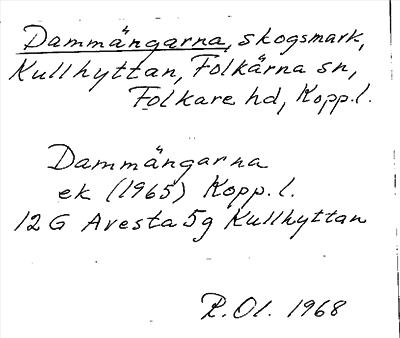 Dammängarna, skogsmark,
Kullhyttan, Folkärna sn,
Folkare hd, Kopp.l.
Dammängarna
ek (1965) Kopp. l.
12 G Avesta 5g Kullhyttan
R. Ol. 1968